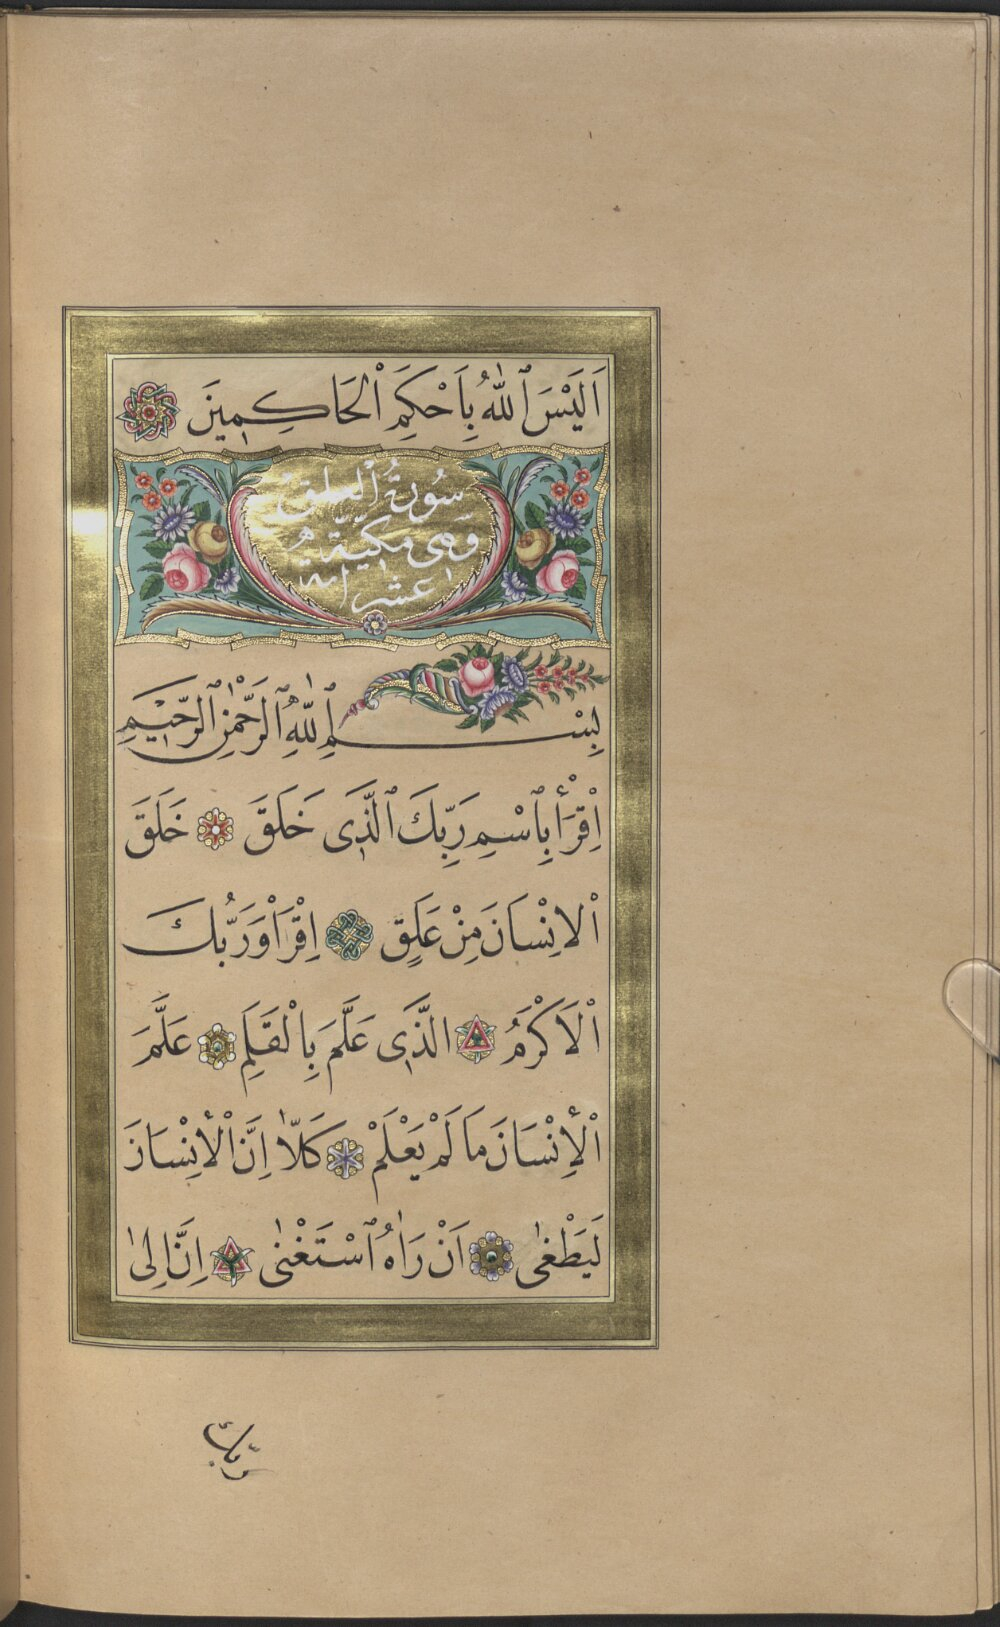 اَلَيْسَ ٱللّٰهُ بِاَحْكَمِ اْلحَاكِمِينَ
سُورَةُ اْلعلق
وَهِىَ مَكِّيَّةٌ
عشر اية
بِسْمِ ٱللّٰهِ ٱلرَّحْمٰنِ ٱلرَّحِيْمِ
اِقْرَأْ بِٱسْمِ رَبِّكَ ٱلَّذِى خَلَقَ خَلَقَ
اْلاِنْسَانَ مِنْ عَلَقٍ اِقْرَاْ وَرَبُّكَ
اْلاَكْرَمُ الَّذِى عَلَّمَ بِالْقَلَمِ عَلَّمَ
اْلاِنْسَانَ مَا لَمْ يَعْلَمْ كَلَّا اِنَّ اْلاِنْسَانَ
لَيَطْغٰى اَنْ رَاٰهُ ٱسْتَغْنٰى اِنَّ اِلٰى
ربك